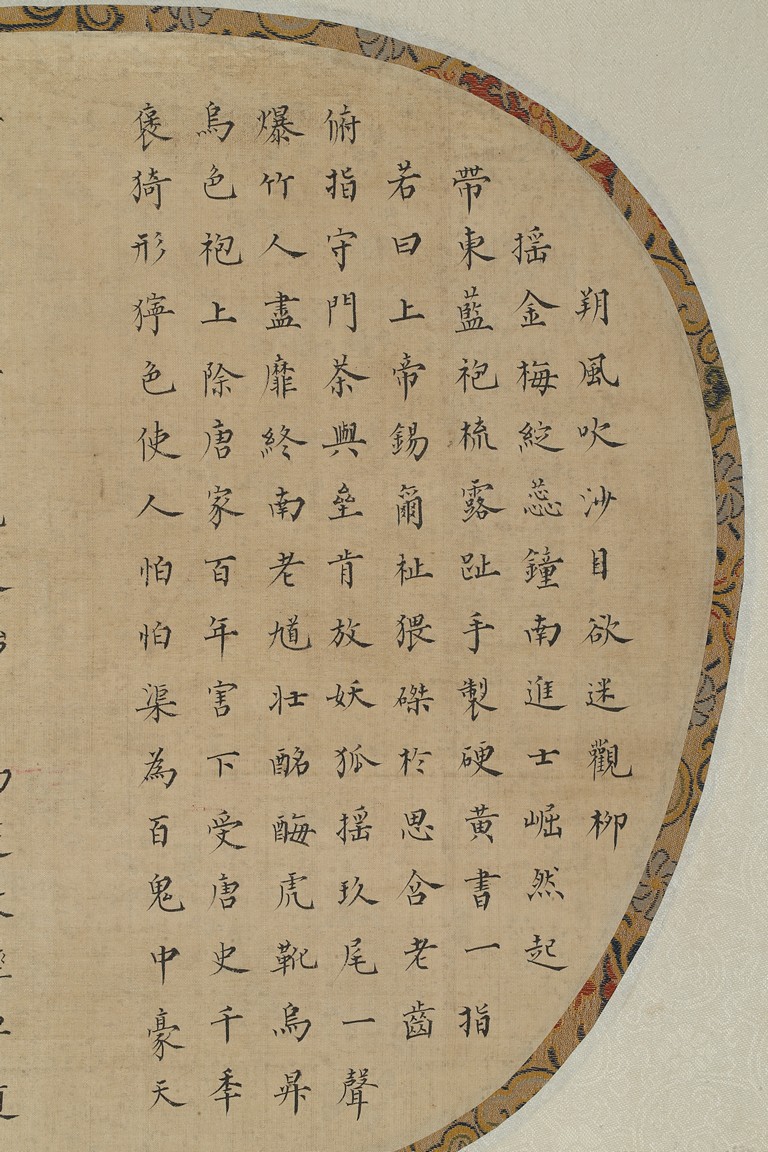 朔風吹沙目欲迷觀柳
揺金梅綻蕊鐘南進士崛然起
帶東藍袍梳露趾手製硬黃書一指
若曰上帝錫爾祉猥磔於思含老齒
俯指守門荼與壘肯放妖狐揺玖尾一聲
爆竹人盡靡終南老馗壯酩酶虎靴烏帠
烏色袍上除唐家百年害下受唐史千秊
褒猗形獰色使人怕怕渠為百鬼中豪天